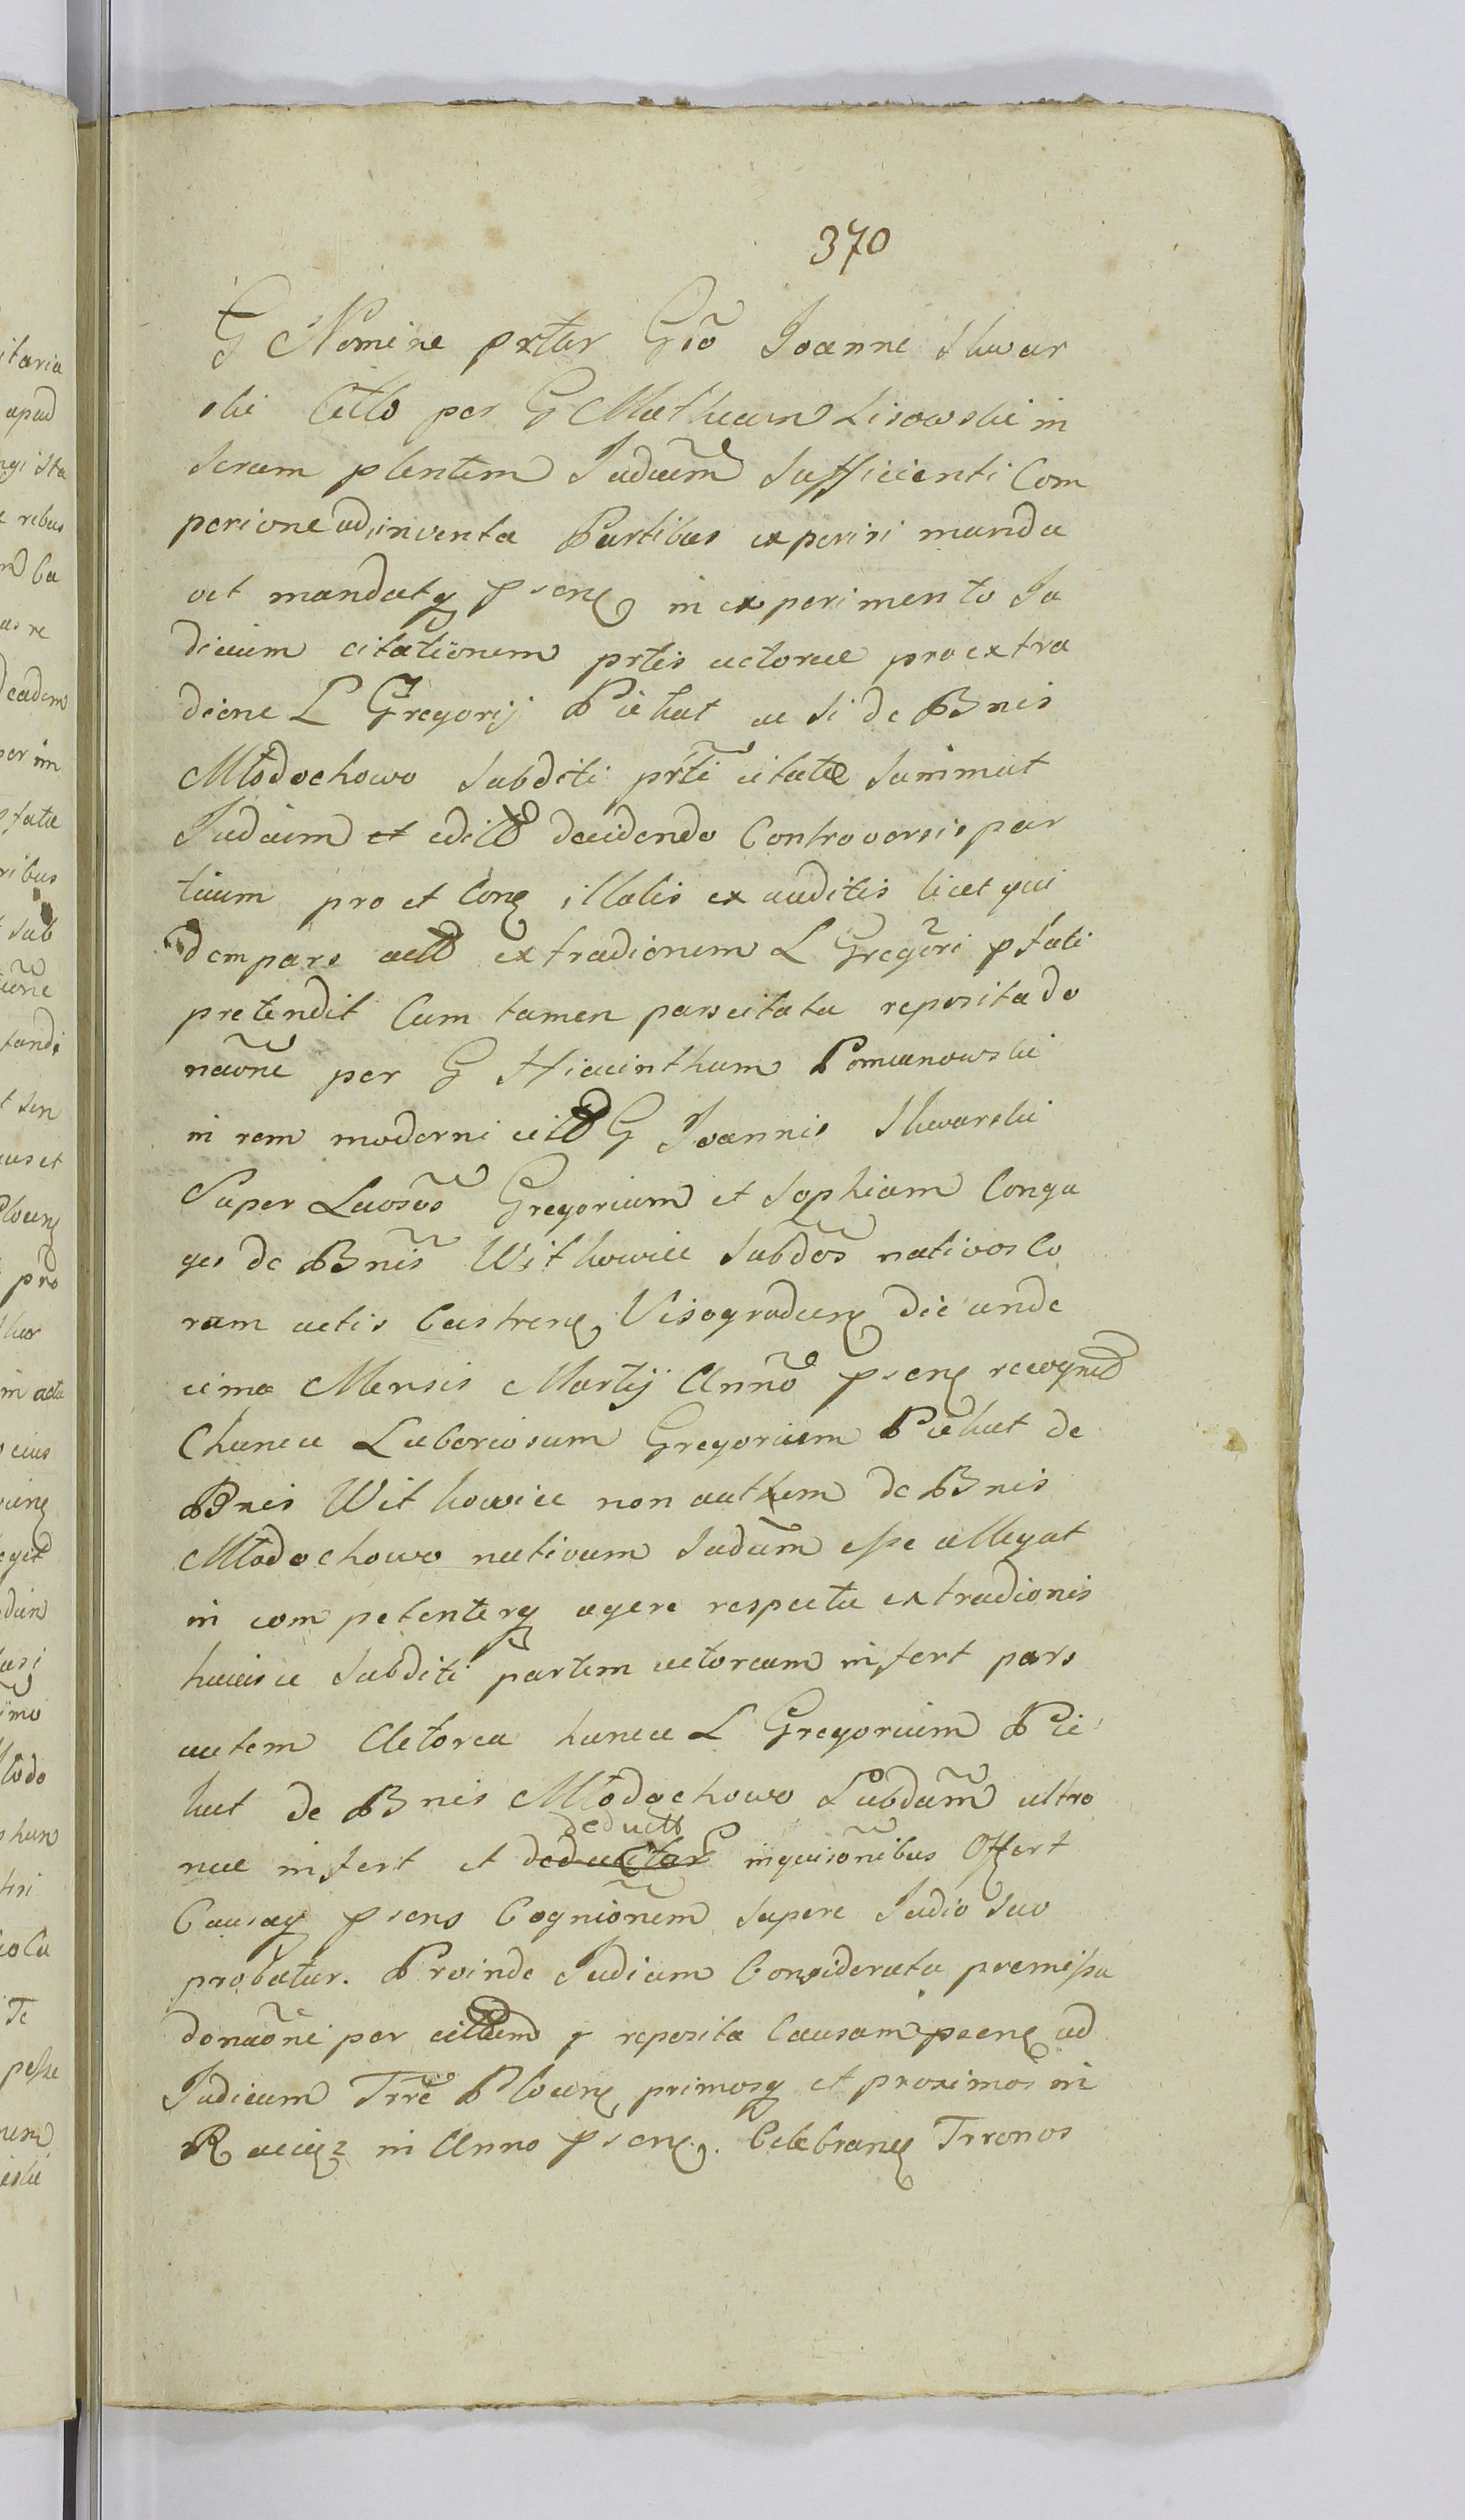 370
G Nomine prtur Gro Joanne Skwar
ski Citto per G Matheum Lisowski in
scrum plentem Judicium sufficienti Com
perione adinventa Partibus experiri manda
vit mandatq psens in experimento Ju
dicium citationem prtis actoreae pro extra
dione L Gregorij Piekut ac si de Bnis
Młodochowo Subditi prti citatae summat
Judicium et edicto decidendo Controversis par
tium pro et Cons illatis ex auditis licet qui
dem pars actt extradionem L Gregori pfati
pretendit Cum tamen pars citata reposita do
naone per G Hiacinthum Pomianowski
in rem moderni citt G Joannis Skwarski
Super Laosos Gregorium et Sophiam Conju
ges de Bnis Witkowice Subdos nativos Co
ram actis Castrens Visogradiens die unde
cima Mensis Martij Anno psens recognit
Chunce Laboriosum Gregorium Piekut de
Bnis Witkowice non autem de Bnis
Młodochowo nativum Subdum esse allegat
in competenterq agere respectu extradionis
huiusce Subditi partem actoream infert pars
autem Actorea hunce L Gregorium Pie
kut de Bnis Młodochowo Subdum ultro
nee infert et deductt inquisonibus Offert
Causaq psens Cognionem supere Judio suo
probatur. Proinde Judium Considerata premissa
donaone per cittum reposita Causam psens ad
Judicium Trre Plocens primosq et proximos in
Raciąz in Anno psens. Celebrans Trronos
itaria
apud
ngi sta
e rebus
m Ca
as re
eadem
per im
sfatae
ribus
t sub
uone
tandi
t sen
ius et
Plocens
pro
in actu
o eius
viens
egit
dun
asi
imo
Młodo
hun
hri
io Ca
Te
pesse
nem
eski